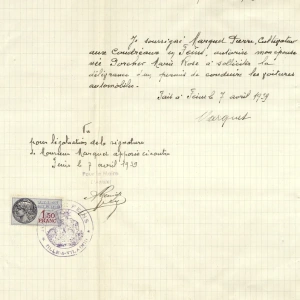 Je soussigné Marquet Pierre,
aux Contréaux en Feins, autorise mon épouse
née Porcher Marie Rose à solliciter la
délivrance d'un permis de conduire les voitures
automobiles.
Fait à Feins le 7 avril 1939
Marquet
Vu
pour légalisation de la signature
de Monsieur Marquet apposée ci contre
Feins le 7 avril 1939
1,50
FRANC